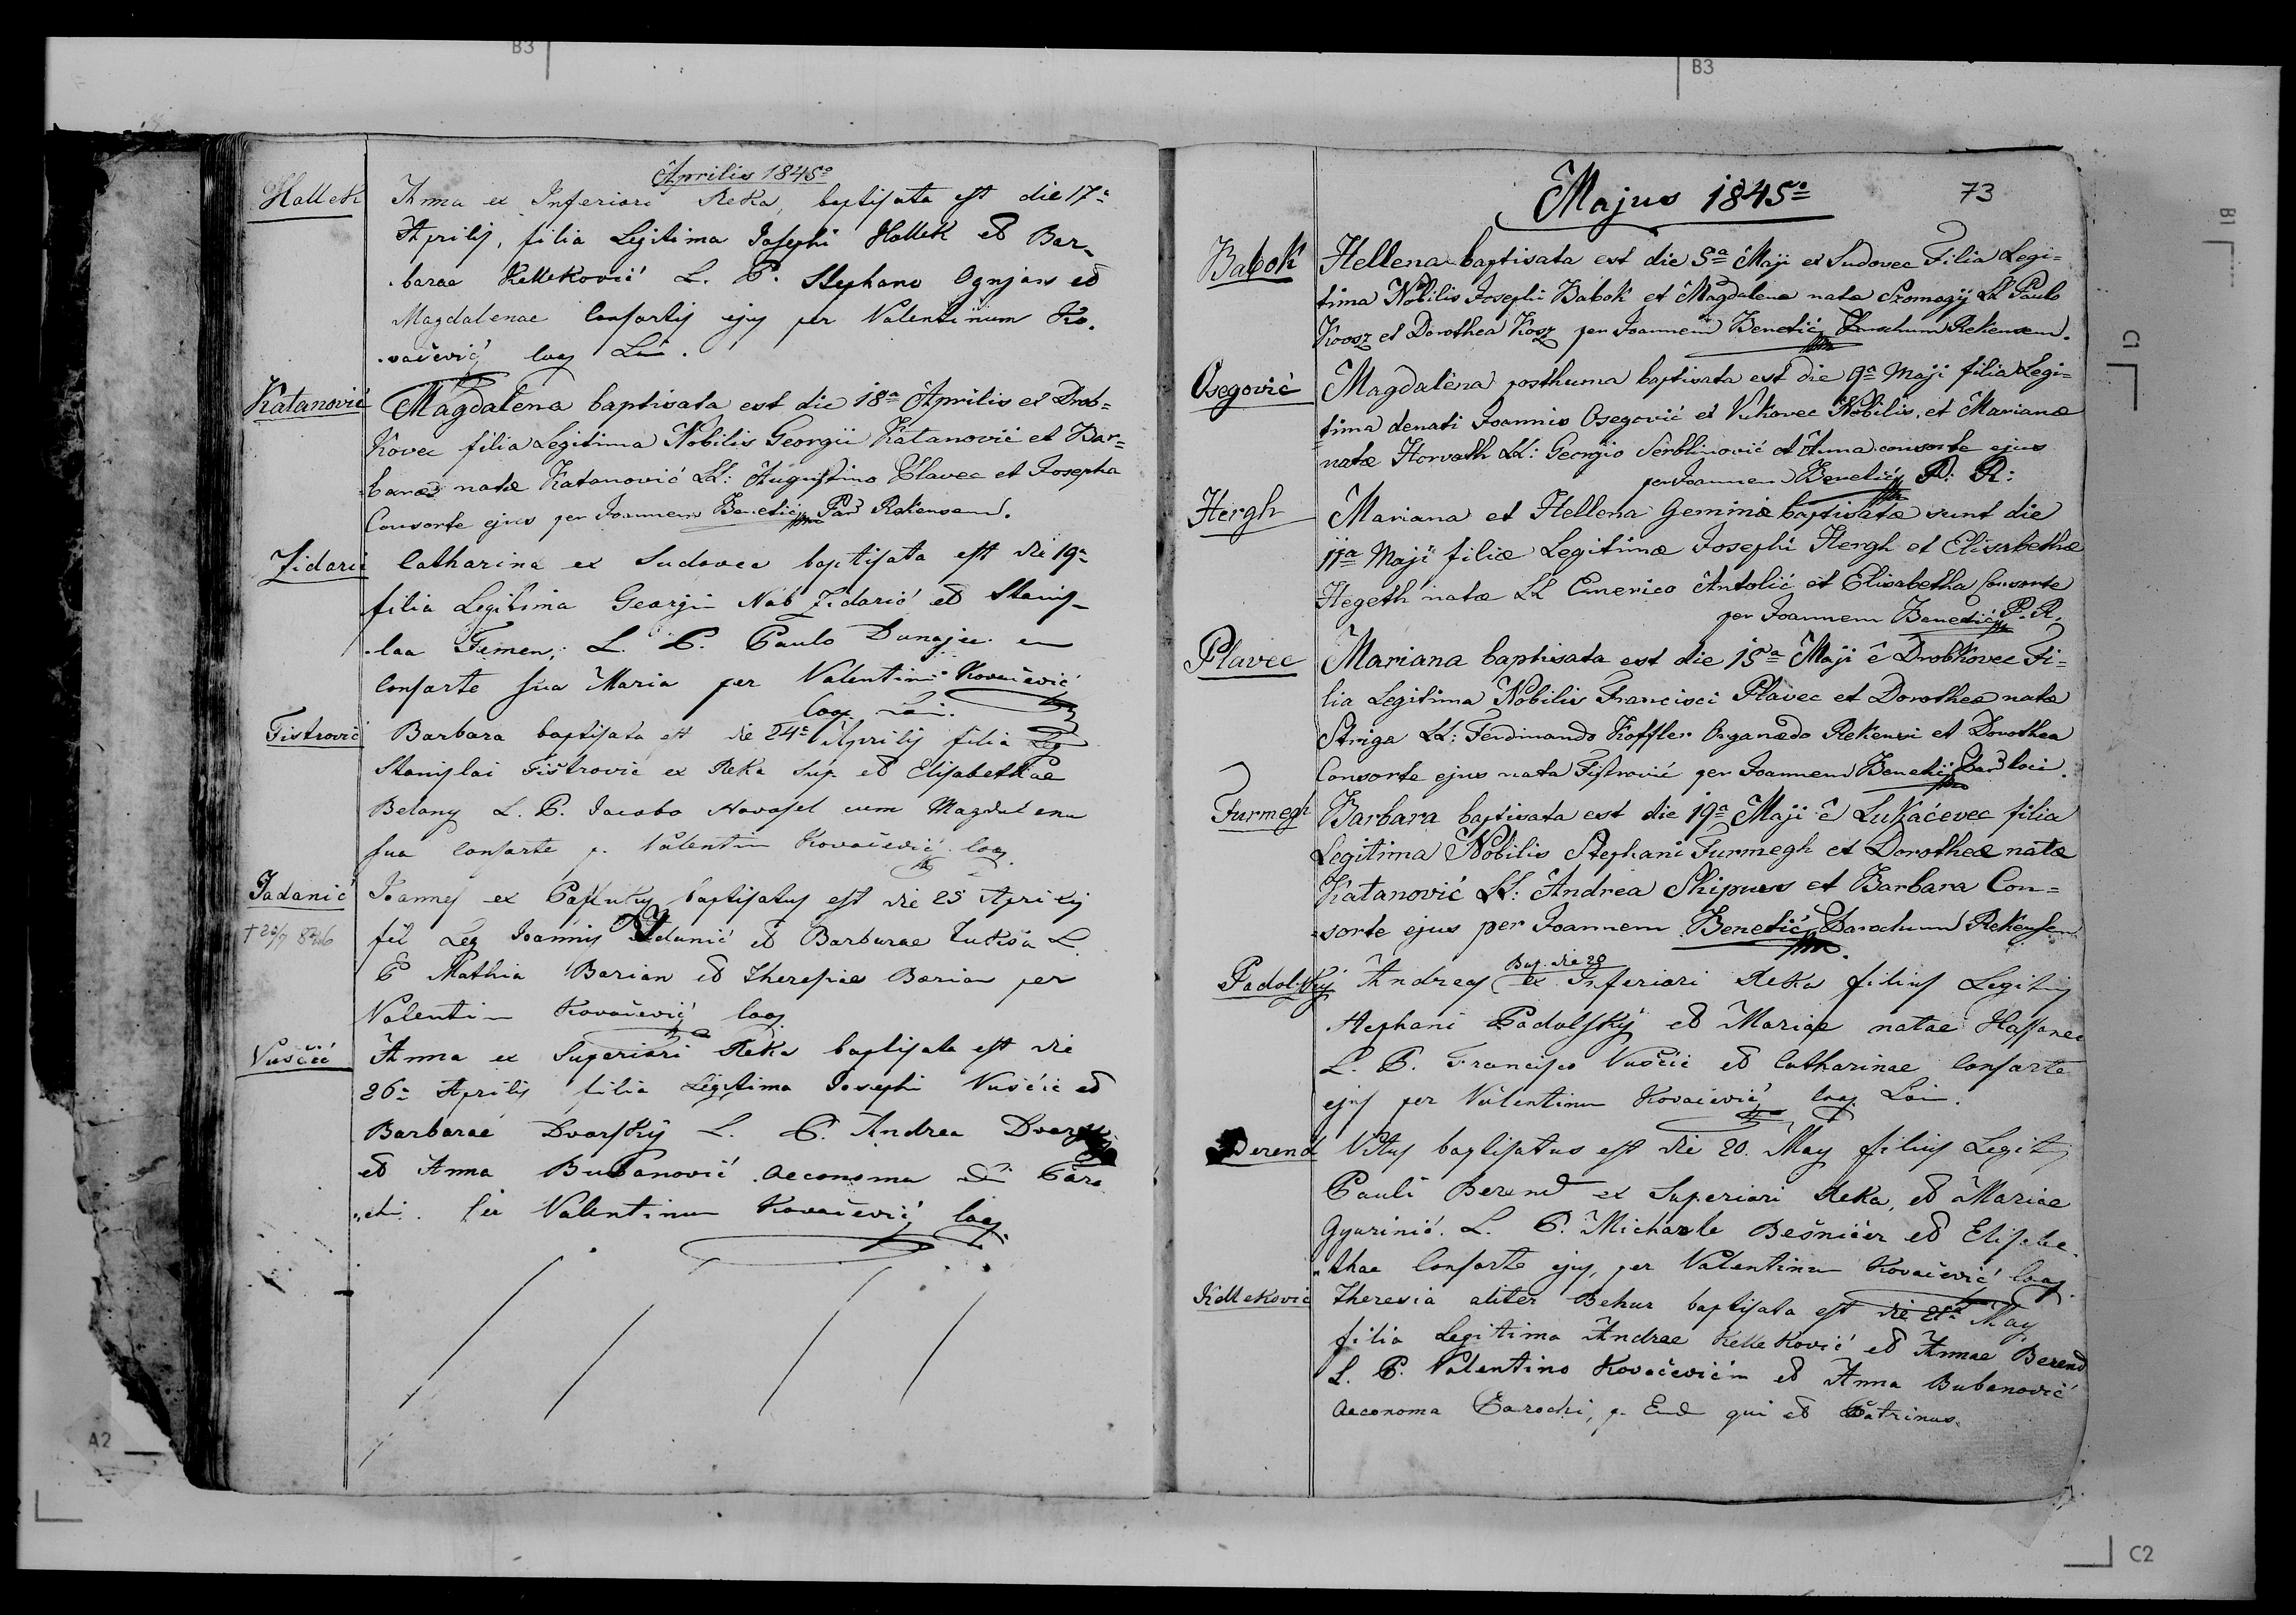 B3
B3
B1
C1
A2
C2
Aprilis 1845º
Hallek
Anna ex Inferiori Reka, baptisata est die 17ª
Aprilis, filia Legitima Josephi Hallek et Bar-
barae Kelleković L. P. Stephano Ognjan et
Magdalenae Consortis ejus per Valentinum Ko-
vačević Coop
Katanović
Magdalena baptisata est die 18ª Aprilis ex Drob=
kovec filia Legitima Nobilis Georgii Katanović et Bar=
baræ natæ Katanović LL: Augustino Plavec et Josepha
Consorte ejus per Joannem Benetić Par Rekensem.
Zidarić
Catharina ex Sudovec baptisata est die 19ª
filia Legitima Georgii Nob Zidarić et Stanis-
laa L. P. Paulo Dunajec
Consorte sua Maria per Valentin Kovačević
Coop
Fistrović
Barbara baptisata est die 24ª Aprilis filia Leg
Stanislai Fištrović ex Reka Sup et Elisabethae
Belany L. P. Jacobo Novosel cum Magdalena
sua Consorte p. Valentin Kovačević Coop.
Jadanić
† 23/7 846
Joannes ex baptisatus est die 25 Aprilis
fil Leg Joannis Jadanić et Barbarae Lukša L
P Mathia Barian et Theresiae Barian per
Valentin Kovačević Coop
Vuščić
Anna ex Superiori Reka baptisata est die
26ª Aprilis filia Legitima Josephi Vuščić et
Barbarae Dvorský L. P. Andrea
et Anna Bubanović Aeconoma Paro
chi. Per Valentinum Kovačević Coop
73
Majus 1845º
Babok
Hellena baptisata est die 5ª Maji ex Sudovec Filia Legi=
tima Nobilis Josephi Babok et Magdalena natæ Szomogÿ LL Paulo
Koosz et Dorothea Kosz per Joannem Benetić Parochum Rekensem.
Osegović
Magdalena posthuma baptisata est die 9ª Maji filia Legi=
tima denati Joannis Osegović ex Vukovec Nobilis, et Marianæ
natæ Horvath LL: Georgio Serblinović et Anna consorte ejus
per Joannem Benetić P: R:
Hergh
Mariana et Hellena Geminæ baptisatæ sunt die
11ª Maji filiæ Legitimæ Josephi Hergh et Elisabethæ
Hegeth natæ LL Emerico Antolić et Elisabetha Consorte
per Joannem Benetić P. R.
Plavec
Mariana baptisata est die 15ª Maji è Drobkovec Fi=
lia Legitima Nobilis Francisci Plavec et Dorotheæ natæ
Striga LL: Ferdinando Koffler Organædo Rekensi et Dorothea
Consorte ejus nata Fistrović per Joannem Benetić Par loci.
Furmegh
Barbara baptisata est die 19ª Maji è Lukačevec filia
Legitima Nobilis Stephani Furmegh et Dorotheæ natæ
Katanović LL: Andrea Shipuss et Barbara Con=
sorte ejus per Joannem Benetić Parochum Rekensem
Padolský
Bap. die 20
Andreas ex Inferiori Reka filius Legitimus
Stephani Padolský et Mariae natae Hassanec
L. P. Francisco Vuščić et Catharinae Consorte
ejus per Valentinum Kovačević Coop
Berend
Vitus baptisatus est die 20. May filius Legit
Pauli Berend ex Superiori Reka, et Mariae
Gyurinić. L. P. Michaele Bešničer et Elisabe-
thae Consorte ejus, per Valentinum Kovačević Coop
Kelleković
Theresia aliter Behur baptisata est die 21ª May
filia Legitima Andreae Kelleković et Annae Berend
L. P. Valentino Kovačević et Anna Bubanović
Aeconoma Parochi, p. End qui et Patrinus.